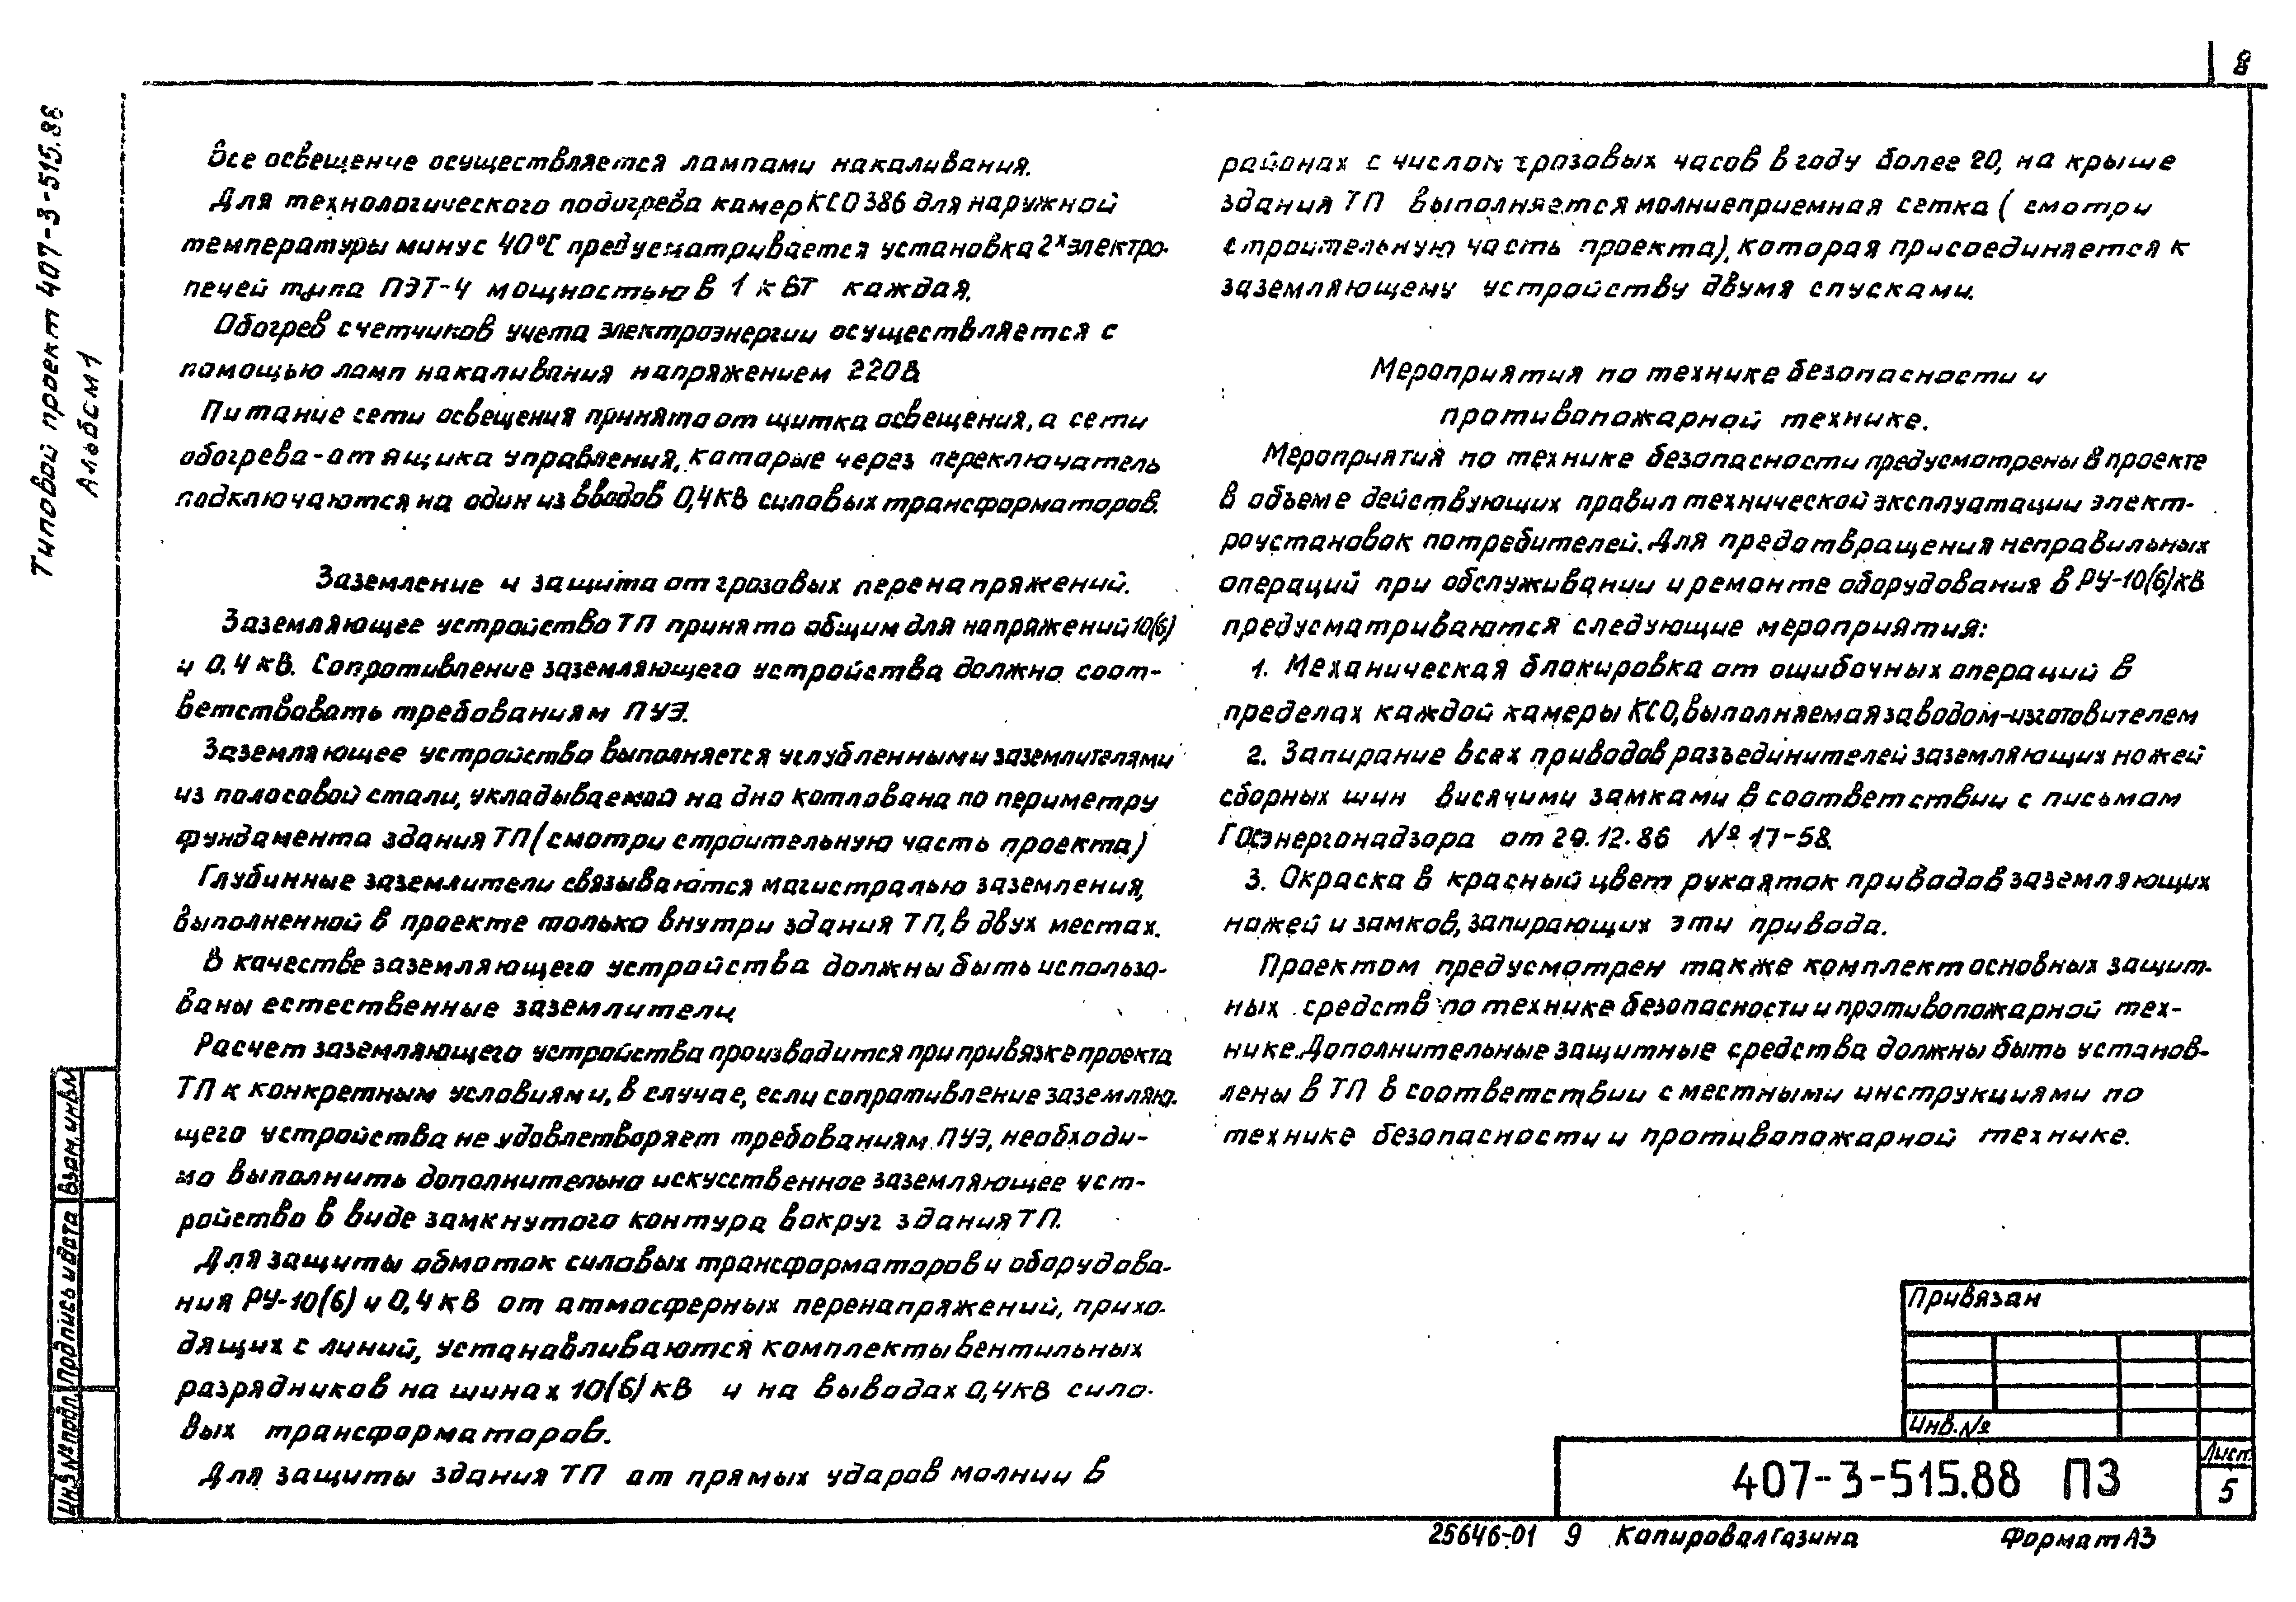 8
Типовой проект 407-3-515.88
Альбом 1
Все освещение осуществляется лампами накаливания.
Для технологического подогрева камер КСО 386 для наружной
температуры минус 40°С предусматривается установка 2х электро-
печей типа ПЭТ-4 мощностью в 1 кВт каждая.
Обогрев счетчиков учета электроэнергии осуществляется с
помощью ламп накаливания напряжением 220В
Питание сети освещения принято от щитка освещения, а сети
обогрева-от ящика управления, которые через переключатель
подключаются на один из вводов 0,4кВ силовых трансформаторов.
Заземление и защита от грозовых перенапряжений.
Заземляющее устройство ТП принято общим для напряжений 10(6)
и 0.4 кВ. Сопротивление заземляющего устройства должно соот-
ветствовать требованиям ПУЭ.
Заземляющее устройство выполняется углубленными заземлителями
из полосовой стали, укладываемой на дно котлована по периметру
фундамента здания ТП (смотри строительную часть проекта)
Глубинные заземлители связываются магистралью заземления,
выполненной в проекте только внутри здания ТП, в двух местах.
В качестве заземляющего устройства должны быть использо-
ваны естественные заземлители
Расчет заземляющего устройства производится при привязке проекта
ТП к конкретным условиями, в случае, если сопротивление заземляю-
щего устройства не удовлетворяет требованиям ПУЭ, необходи-
мо выполнить дополнительно искусственное заземляющее уст-
ройство в виде замкнутого контура вокруг здания ТП.
Для защиты обмоток силовых трансформаторов и оборудова-
ния РУ-10(6) и 0,4 кВ от атмосферных перенапряжений, прихо-
дящих с линий, устанавливаются комплекты вентильных
разрядников на шинах 10(6) кВ и на выводах 0,4кВ сило-
вых трансформаторов.
Для защиты здания ТП от прямых ударов молнии в
районах с числом грозовых часов в году более 20, на крыше
здания ТП выполняется молниеприемная сетка (смотри
строительную часть проекта), которая присоединяется к
заземляющему устройству двумя спусками.
Мероприятия по технике безопасности и
противопожарной технике.
Мероприятия по технике безопасности предусмотрены в проекте
в объеме действующих правил технической эксплуатации элект-
роустановок потребителей. Для предотвращения неправильных
операций при обслуживании и ремонте оборудования в РУ-10(6)кВ
предусматриваются следующие мероприятия:
1. Механическая блокировка от ошибочных операций в
пределах каждой камеры КСО, выполняемая заводом-изготовителем
2. Запирание всех приводов разъединителей заземляющих ножей
сборных шин висячими замками в соответствии с письмом
Госэнергонадзора от 29.12.86 №17-58.
3. Окраска в красный цвет рукояток приводов заземляющих
ножей и замков, запирающих эти привода.
Проектом предусмотрен также комплект основных защит-
ных средств по технике безопасности и противопожарной тех-
нике. Дополнительные защитные средства должны быть установ-
лены в ТП в соответствии с местными инструкциями по
технике безопасности и противопожарной технике.
Взам.инв.№
Подпись и дата
Инв № подл.
Привязан
Инв.№
407-3-515.88 ПЗ
Лист
5
25646-01 9 Копировал Газина Формат А3